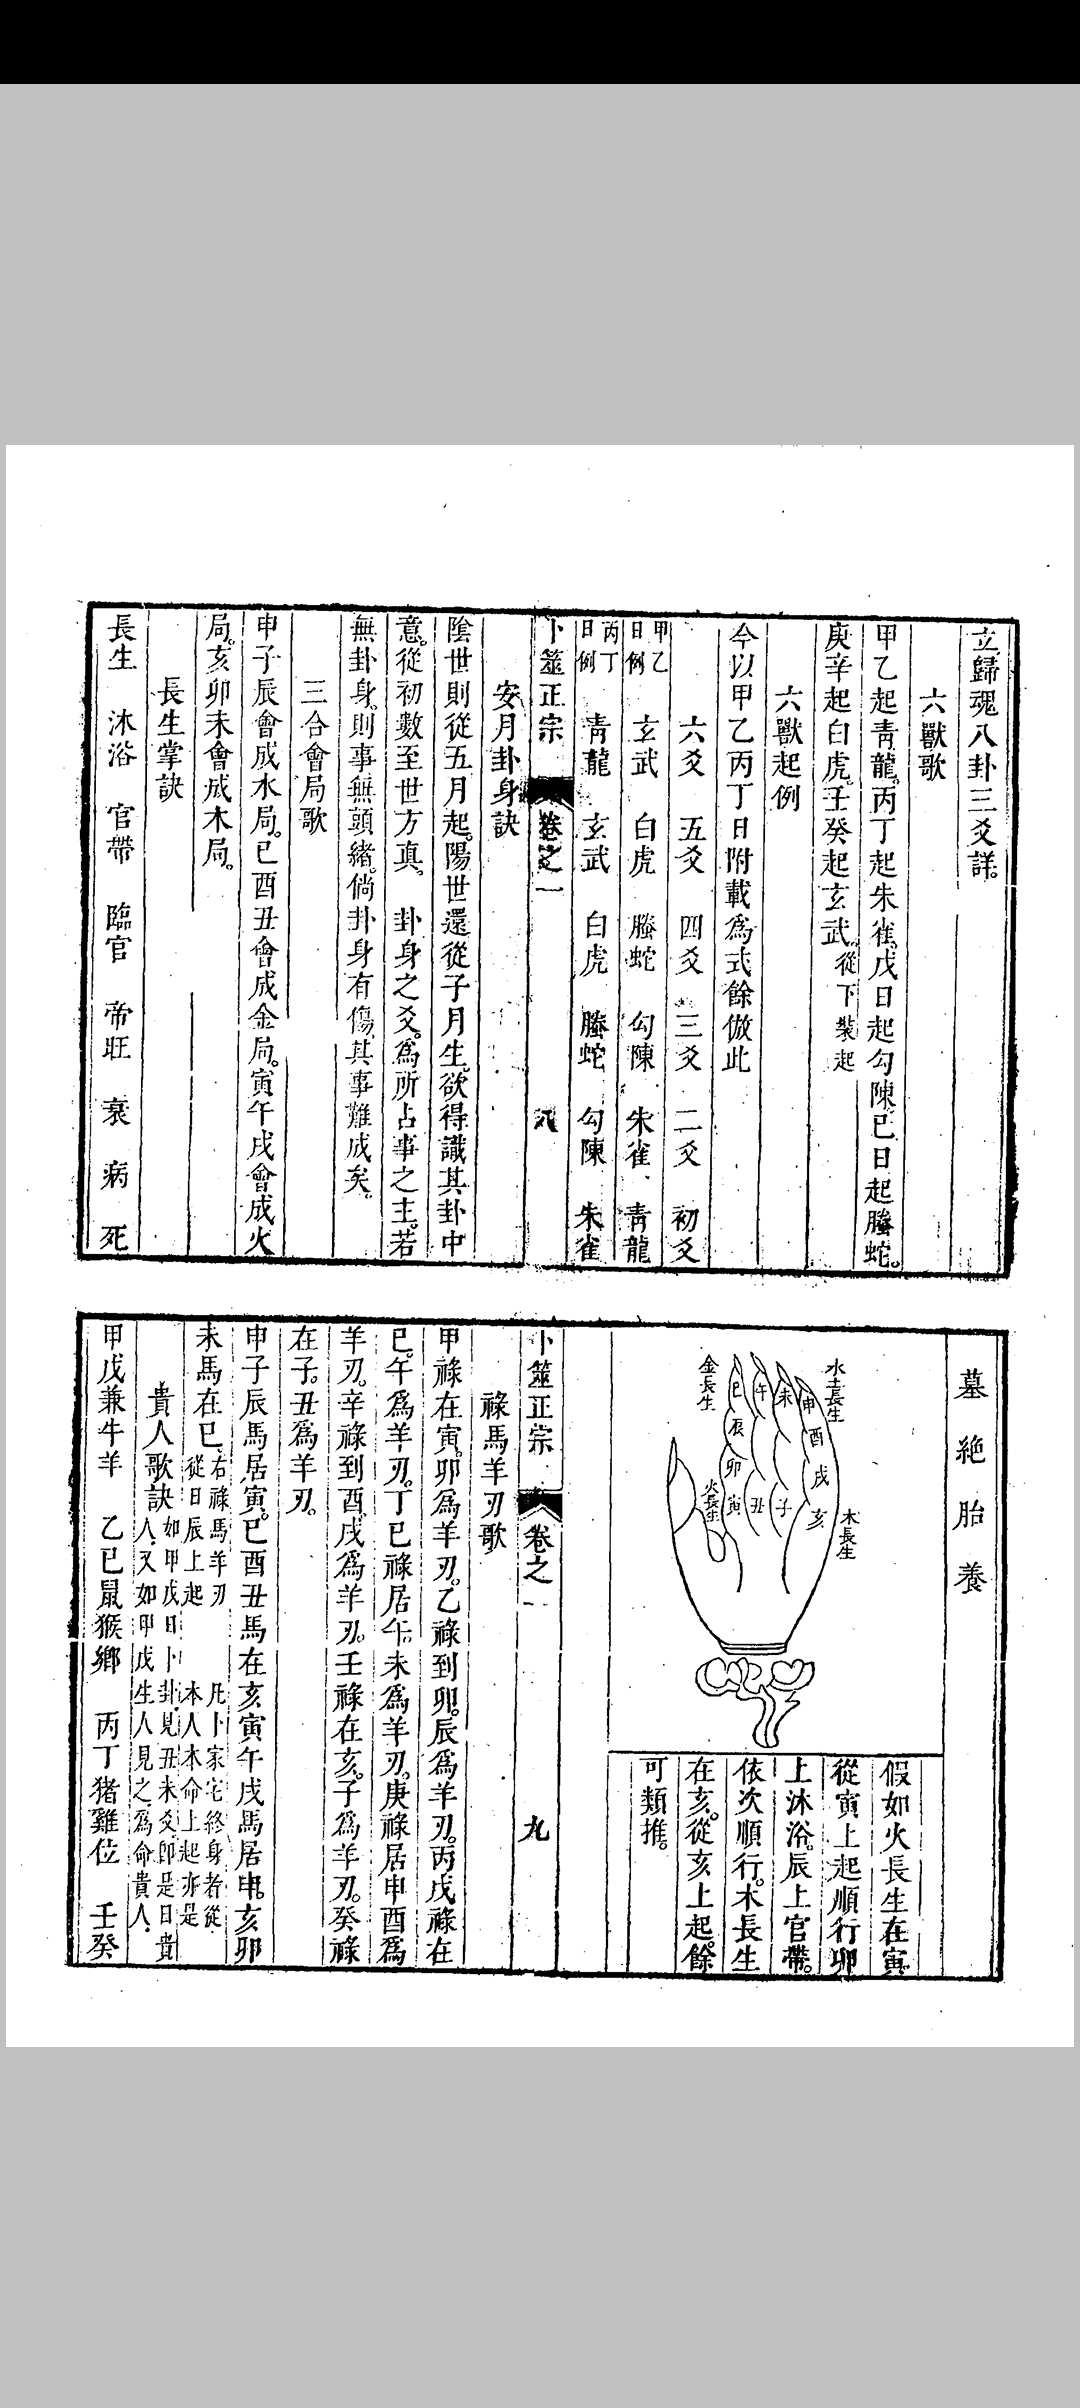 立歸魂八卦三爻詳。
六獸歌
甲乙起青龍。丙丁起朱雀。戊日起勾陳。己日起螣蛇。
庚辛起白虎。壬癸起玄武。從下裝起
六獸起例
今以甲乙丙丁日附載爲式餘倣此
六爻 五爻 四爻 三爻 二爻 初爻
甲乙日例 玄武 白虎 螣蛇 勾陳 朱雀 青龍
丙丁日例 青龍 玄武 白虎 螣蛇 勾陳 朱雀
卜筮正宗 卷之一 八
安月卦身訣
陰世則從五月起。陽世還從子月生。欲得識其卦中
意。從初數至世方真。 卦身之爻。爲所占事之主。若
無卦身。則事無頭緒。倘卦身有傷。其事難成矣。
三合會局歌
申子辰會成水局。巳酉丑會成金局。寅午戌會成火
局。亥卯未會成木局。
長生掌訣
長生 沐浴 官帶 臨官 帝旺 衰 病 死
墓 絕 胎 養
水土長生
金長生
木長生
火長生
巳 午 未 申
辰 酉
卯 戌
寅 丑 子 亥
假如火長生在寅
從寅上起順行卯
上沐浴。辰上官帶。
依次順行。木長生
在亥。從亥上起。餘
可類推。
卜筮正宗 卷之一 九
祿馬羊刃歌
甲祿在寅。卯爲羊刃。乙祿到卯。辰爲羊刃。丙戊祿在
巳。午爲羊刃。丁巳祿居午。未爲羊刃。庚祿居申酉爲
羊刃。辛祿到酉。戌爲羊刃。壬祿在亥。子爲羊刃。癸祿
在子。丑爲羊刃。
申子辰馬居寅。巳酉丑馬在亥寅午戌馬居申。亥卯
未馬在巳。右祿馬羊刃 凡卜家宅終身者從
從日辰上起 本人本命上起亦是
貴人歌訣 如甲戊日卜卦。見丑未爻。即是日貴
人。又如甲戊生人見之。爲命貴人。
甲戊兼牛羊 乙己鼠猴鄉 丙丁猪雞位 壬癸